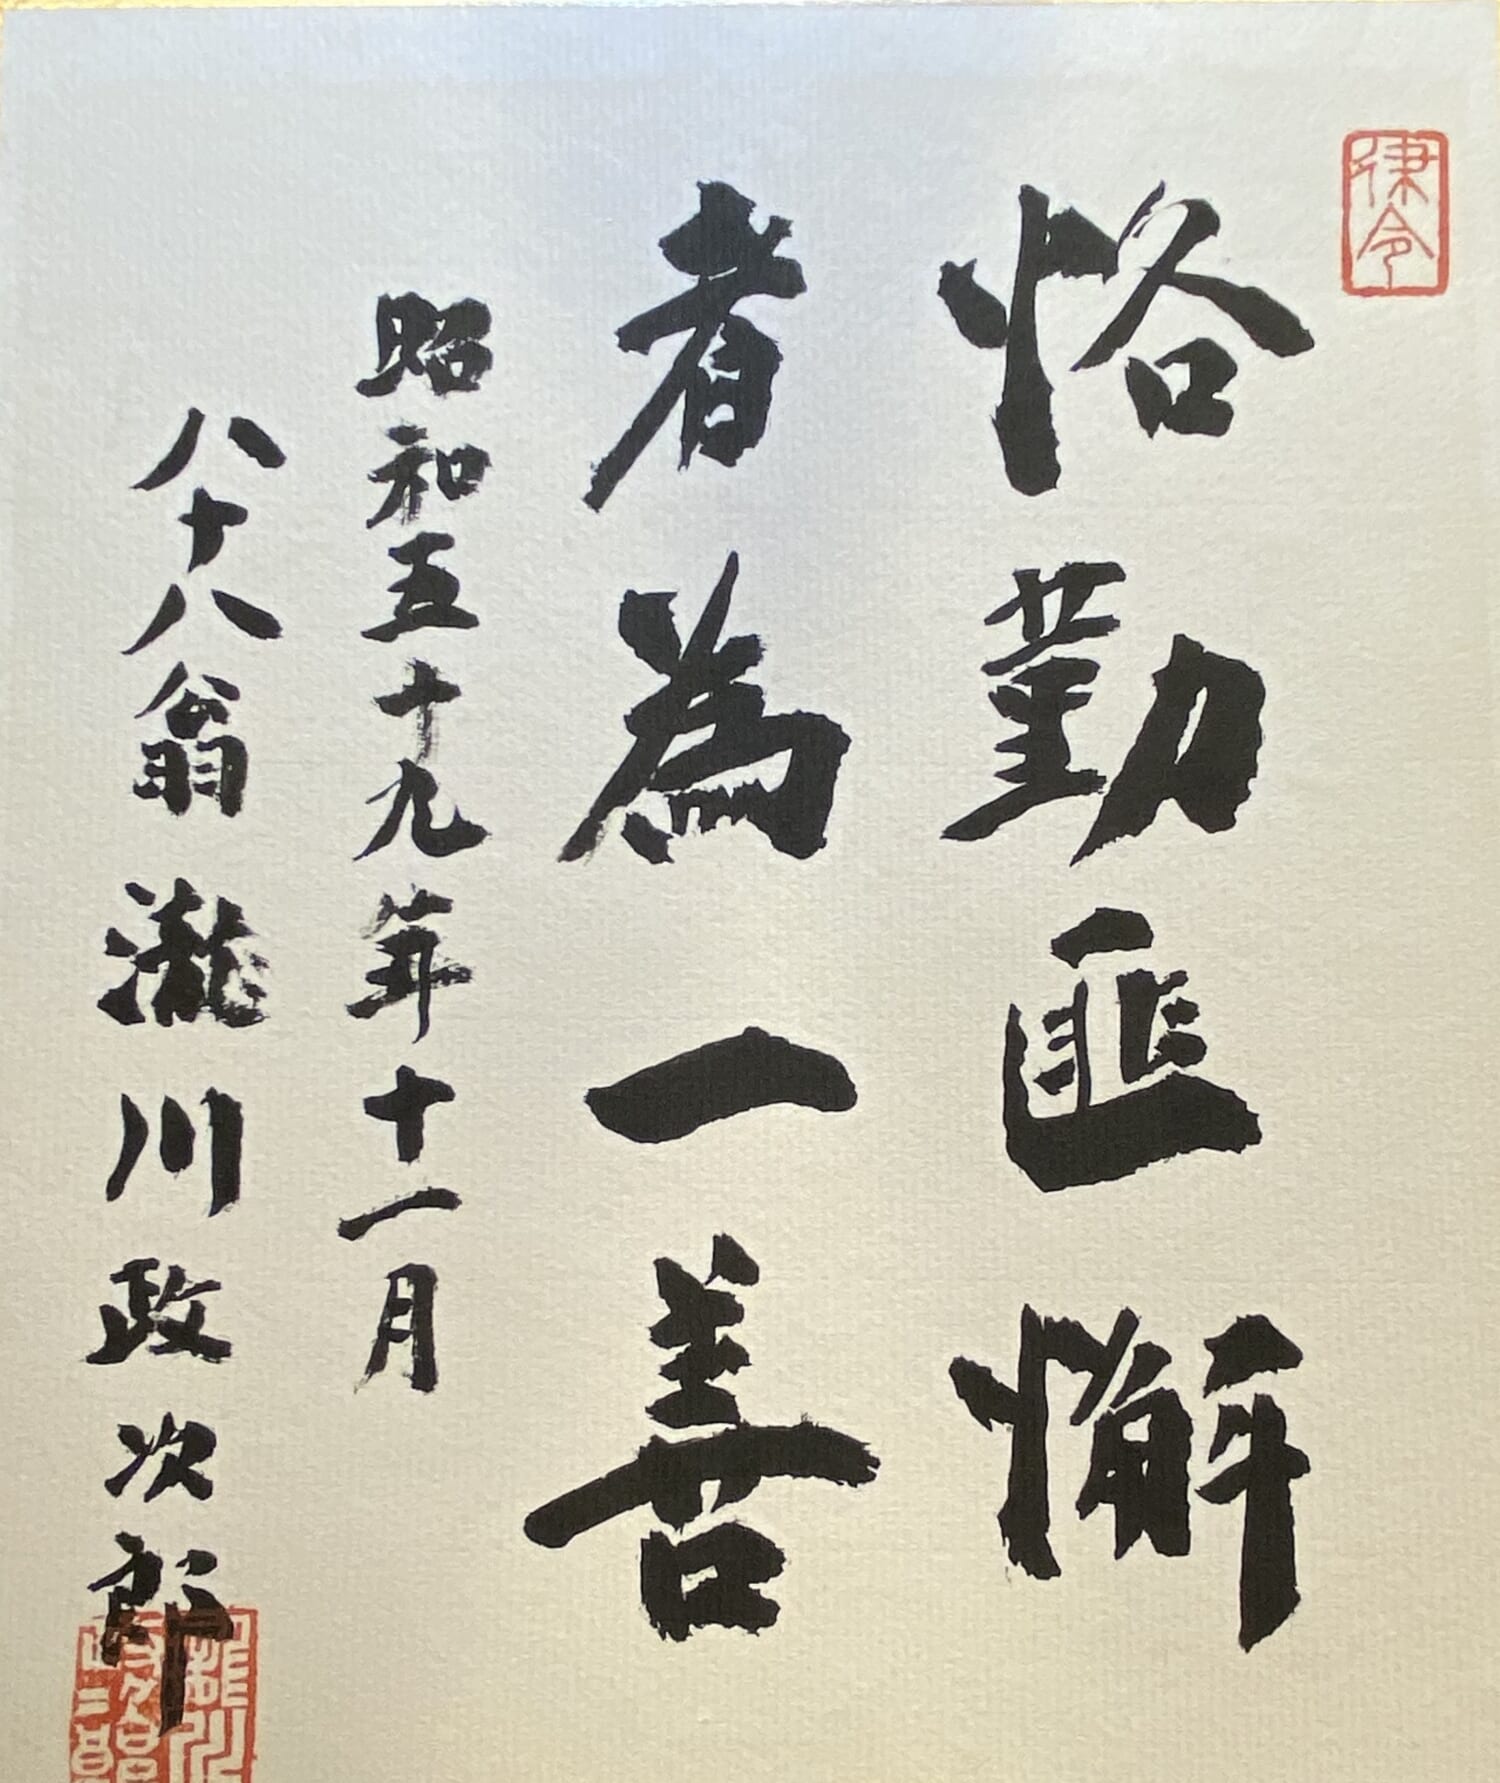 律令
恪勤匪懈
者為一善
昭和五十九年十一月
八十八翁 瀧川政次郎